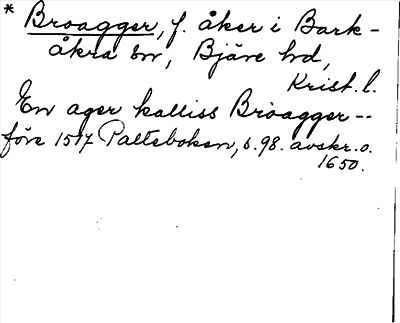 * Broagger, f. åker i Bark-
åkra sn, Bjäre hd,
Krist. l.
En ager kalliss Broagger --
före 1517 Palteboken, s. 98. avskr. o.
1650.